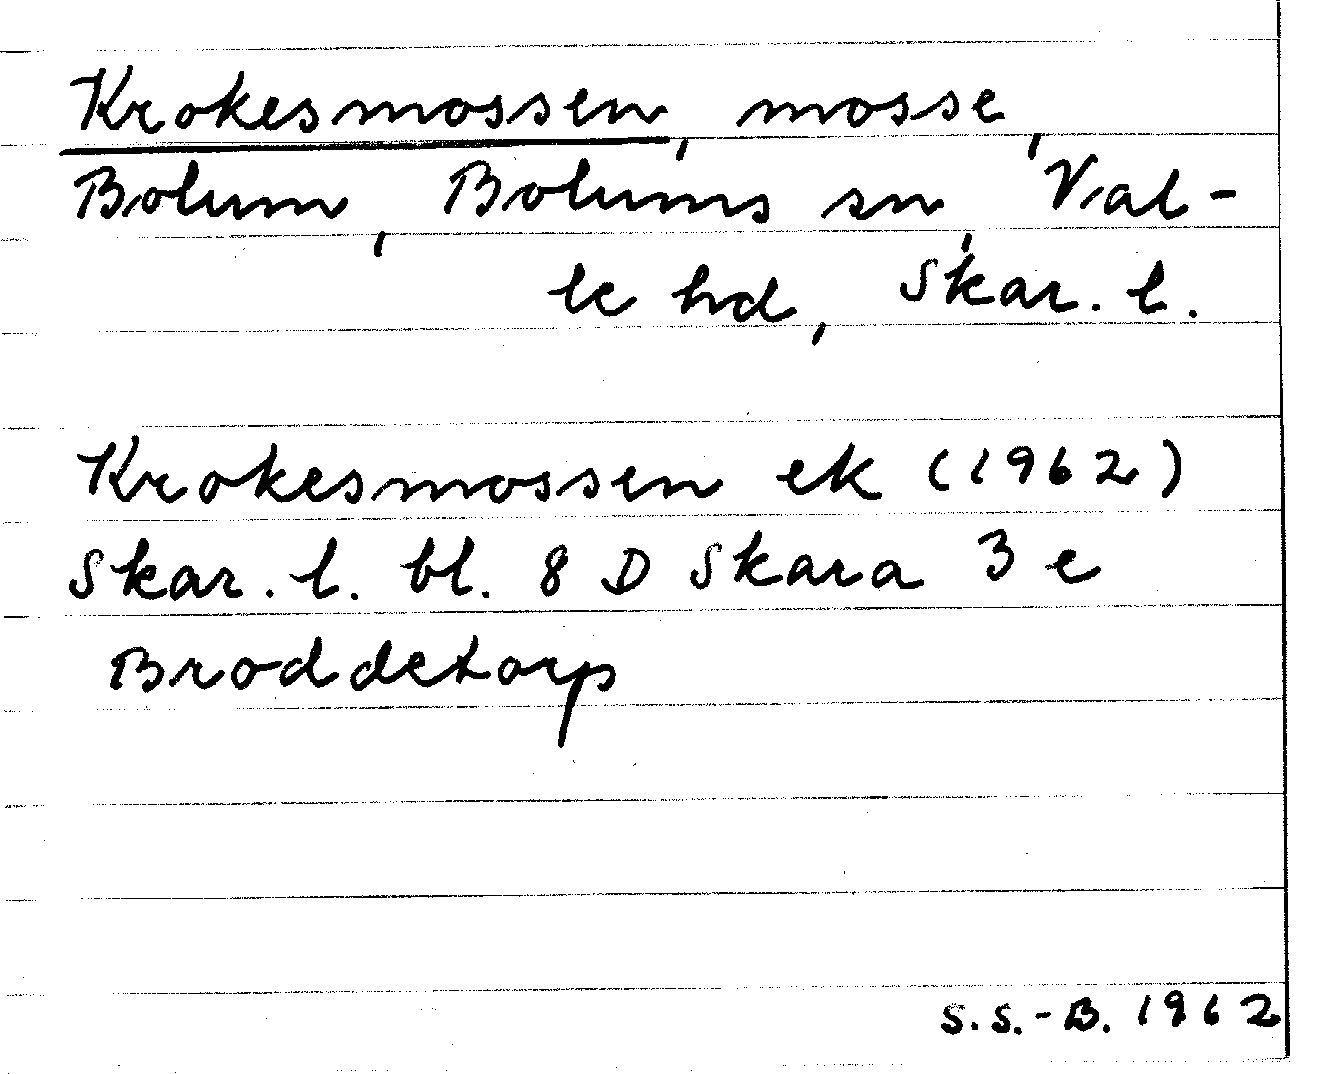 Krokesmossen, mosse,
Bolum, Bolums sn, Val-
le hd, Skar. l.
Krokesmossen ek (1962)
Skar. l. bl. 8 D Skara 3 e
Broddetorp
S.S.-B. 1962